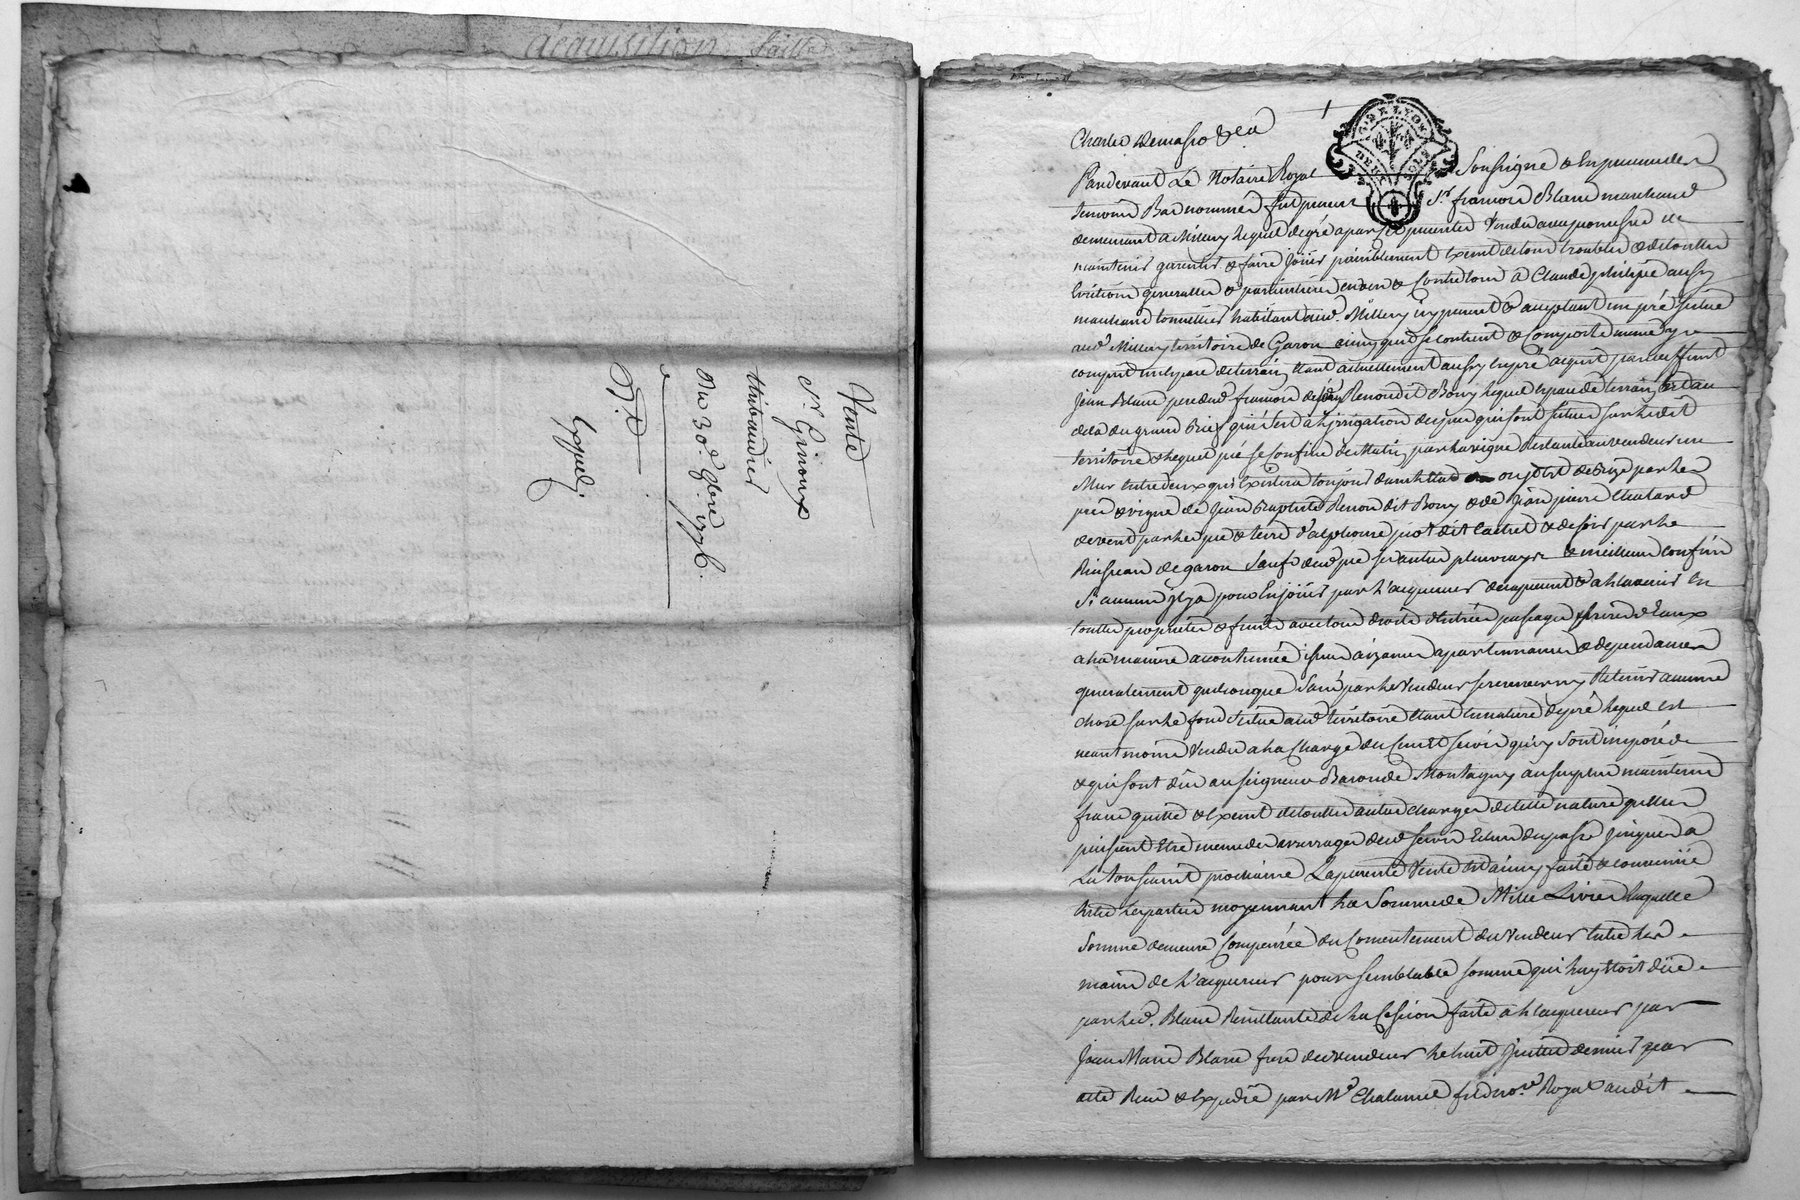 acquisition
Vente
Sr. Ginoux
thibaudier
Du 30e 9bre 1776.
Expedié
G. DE LYON
Pardevant Le Notaire Royal Soussigné & En presence des
temoins Bas nommés fut present Sr. françois Blanc marchand
demeurant a Millery lequel de gré a par ces presentes Vendu avec promesse de
maintenir garentir & faire Jouir paisiblement Exempt de tous troubles & de touttes
Evictions generalles & particulieres envers & Contre tous a Claude philipe aussy
marchand tonnellier habitant aud. Millery icy present & acceptant un pré Situé
aud. Millery territoire de Garon ainsy quil se contient & Comporte même y
compris un Espace de terrain Etant actuellement aussy en pré acquit par deffunt
Jean Blanc pere dud. françois de Renon dit Bory lequel espace de terrain est au
dela du grand Bief qui sert a l'irrigation des prés qui sont situés sur ledit
territoire & lequel pré se confine de Matin par la vigne Restante au vendeur un
Mur Entre deux qui Existera toujours dans l'Etat ou il est de Bize par les
pré & vigne de Jean Baptiste Renon dit Bory & de Jean pierre Chatard
de vent par les pré & terre d'alphonse & de soir par le
Ruisseau de garon Sauf dud. pré ses autres plus vrays & meilleurs confins
Si aucuns Il y a pour En jouir par L'acquereur des a present & a L'avenir En
touttes proprietés & fruits avec tous droits d'Entrées passages prises d'Eaux
a la maniere accoutumée issues aizances apartenances & dependances
generalement quelconques Sans par le Vendeur se reserver ny Retenir aucune
chose sur le fond Situé aud. territoire Etant en nature de pré lequel est
neantmoins Vendu a la Charge des Cens & servis qui y sont imposés
& qui sont dûs au seigneur Baron de Montagny au surplus maintenu
franc quitte & Exempt de touttes autres charges de telle nature qu'elles
puissent Etre meme des arrerages desd. servis Echus du passé jusques a
La toussaint prochaine La presente Vente est ainsy faite & convenuë
Entre les parties moyennant La Somme de Mille Livres laquelle
Somme demeure Compensée du Consentement du Vendeur Entre les
mains de L'acquereur pour semblable somme qui luy Etoit düe
par led. Blanc Resultante de la Cession faite a L'acquereur par
Jean Marie Blanc frere du vendeur le huit Juillet dernier par
acte Recu & Expedié par Me Chalumel fils nore. Royal audit